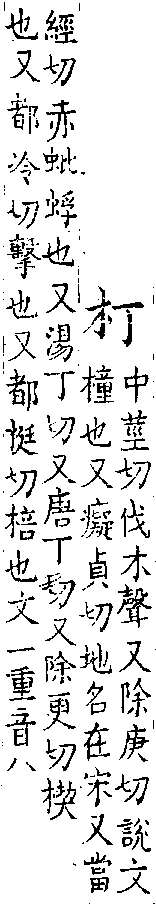 朾
中莖切伐木聲又除庚切說文
橦也又癡貞切地名在宋又當
經切赤蚍蜉也又湯丁切又唐丁切又除更切楔
也又都冷切擊也又都挺切棓也文一重音八